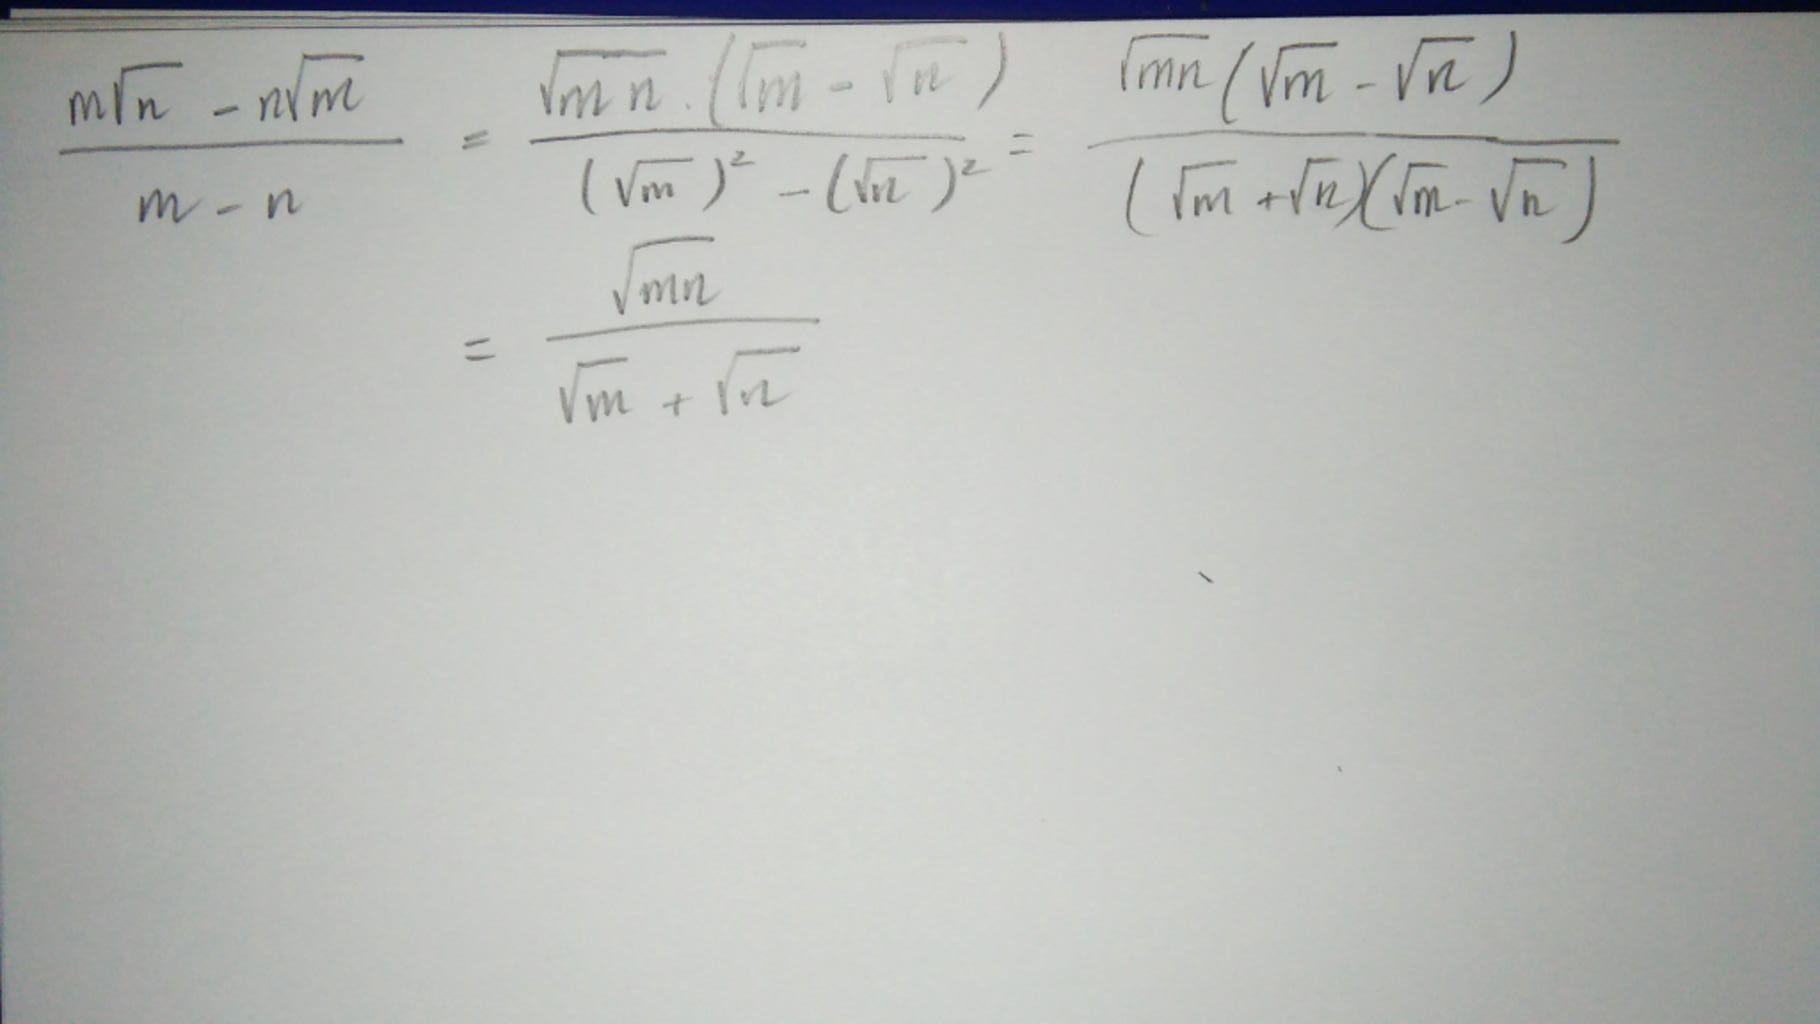 (m√n - n√m)/(m - n) = (√mn · (√m - √n))/((√m)² - (√n)²) = (√mn (√m - √n))/((√m + √n)(√m - √n))
= √mn/(√m + √n)